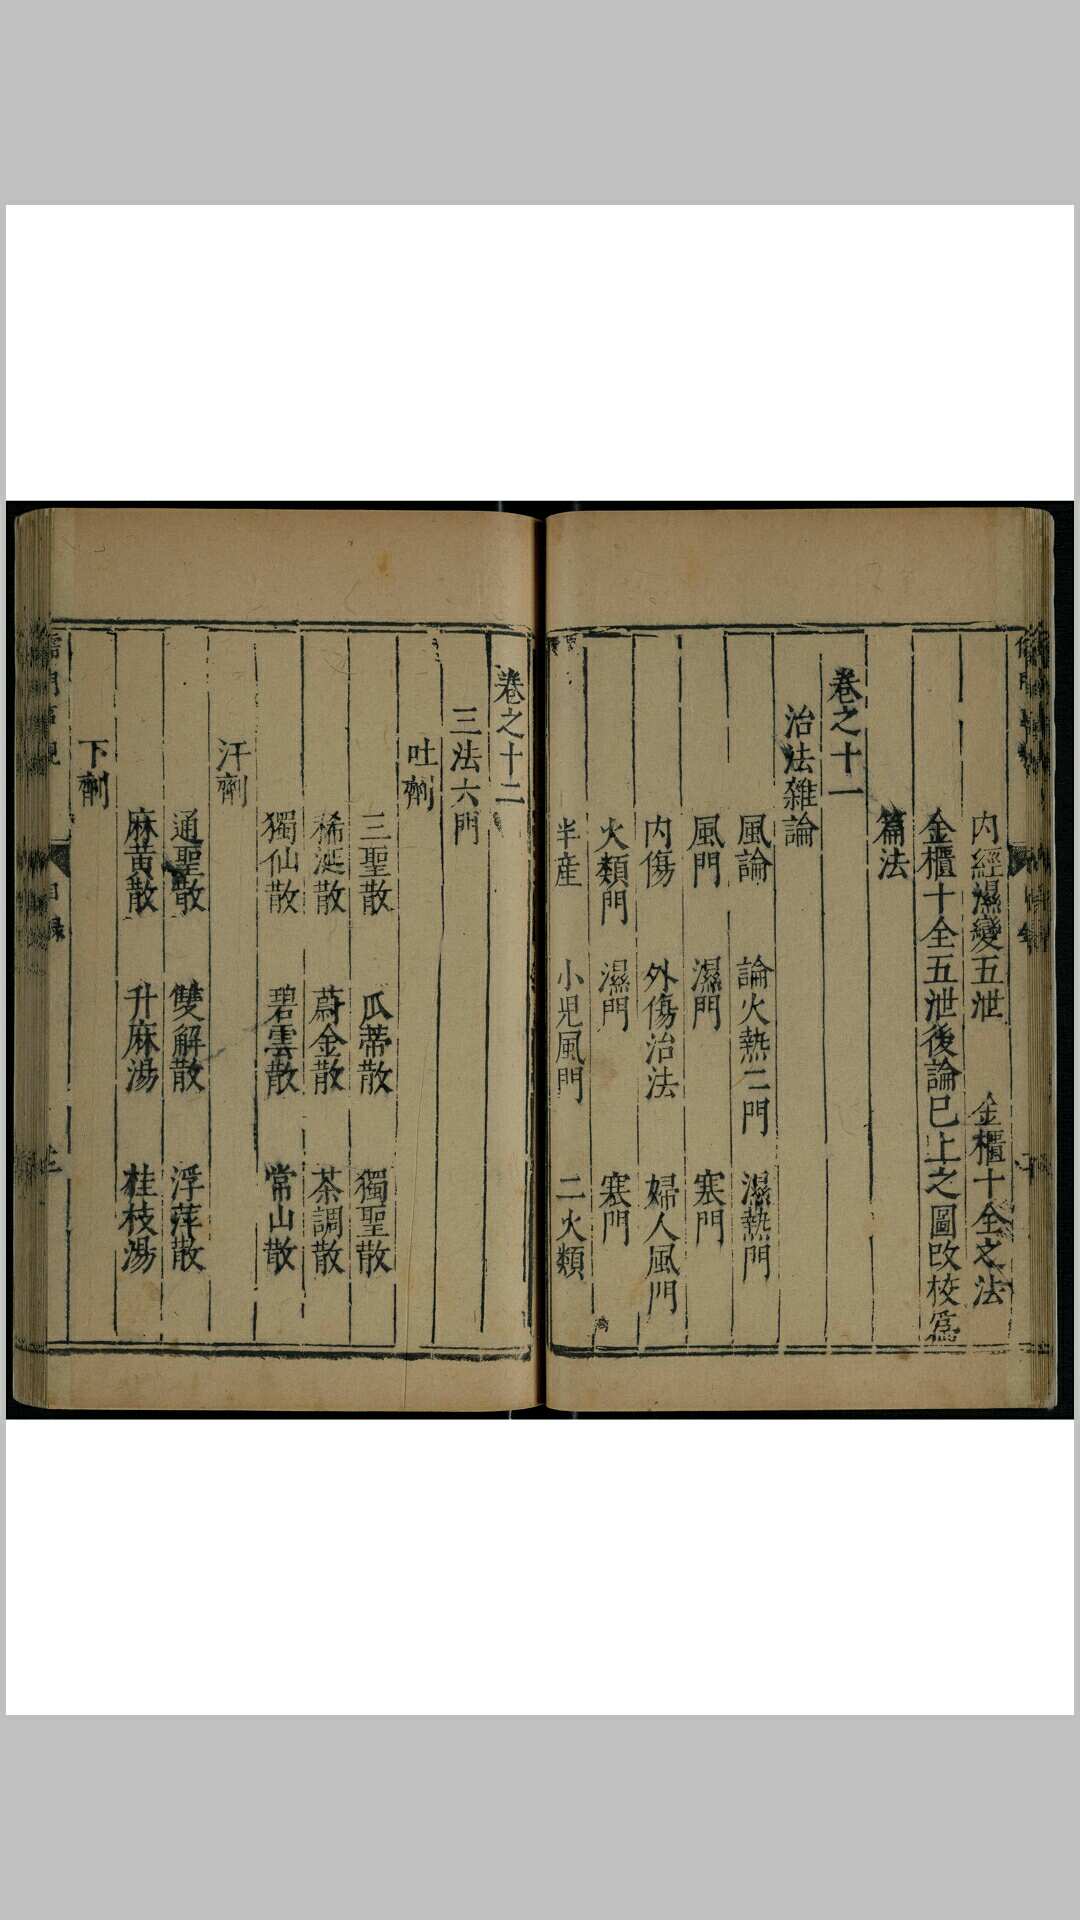 內經濕變五泄 金櫃十全之法
金櫃十全五泄後論已上之圖改校爲
篇法
卷之十一
治法雜論
風論 論火熱二門 濕熱門
風門 濕門 寒門
内傷 外傷治法 婦人風門
火類門 濕門 寒門
半産 小兒風門 二火類
卷之十二
三法六門
吐劑
三聖散 瓜蒂散 獨聖散
稀涎散 蔚金散 茶調散
獨仙散 碧雲散 常山散
汗劑
通聖散 雙解散 浮萍散
麻黄散 升麻湯 桂枝湯
下劑
目録